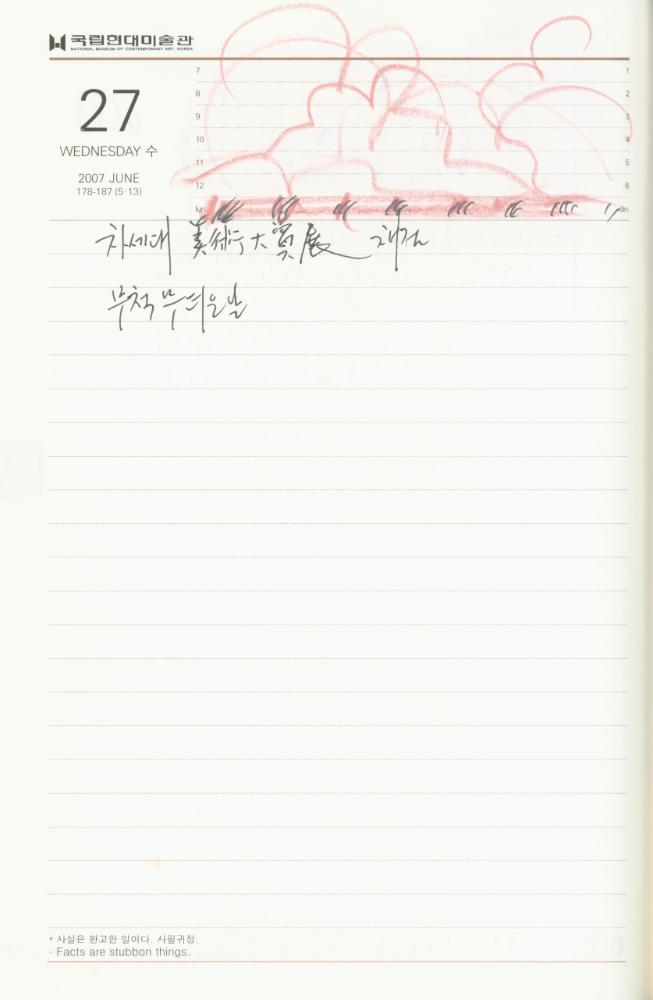 국립현대미술관
NATIONAL MUSEUM OF CONTEMPORARY ART, KOREA
27
WEDNESDAY 수
2007 JUNE
178-187 (5·13)
7 1
8 2
9 3
10 4
11 5
12 6
lun. din.
차세대 美術大賞展
무척 무더운날
* 사실은 완고한 일이다. 사필귀정.
- Facts are stubbon things.